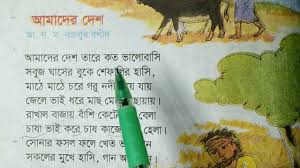 আমাদের দেশ
আ. ন. ম. বজলুর রশীদ
আমাদের দেশ তারে কত ভালোবাসি
সবুজ ঘাসের বুকে শেফালির হাসি,
মাঠে মাঠে চরে গরু নদী যায়
জেলে ভাই ধরে মাছ ছায়ায়।
রাখাল বাজায় বাঁশি কেটে বেলা
চাষা ভাই করে চাষ হেলা।
সোনার ফসল ফলে খেত
সকলের মুখে হাসি, গান